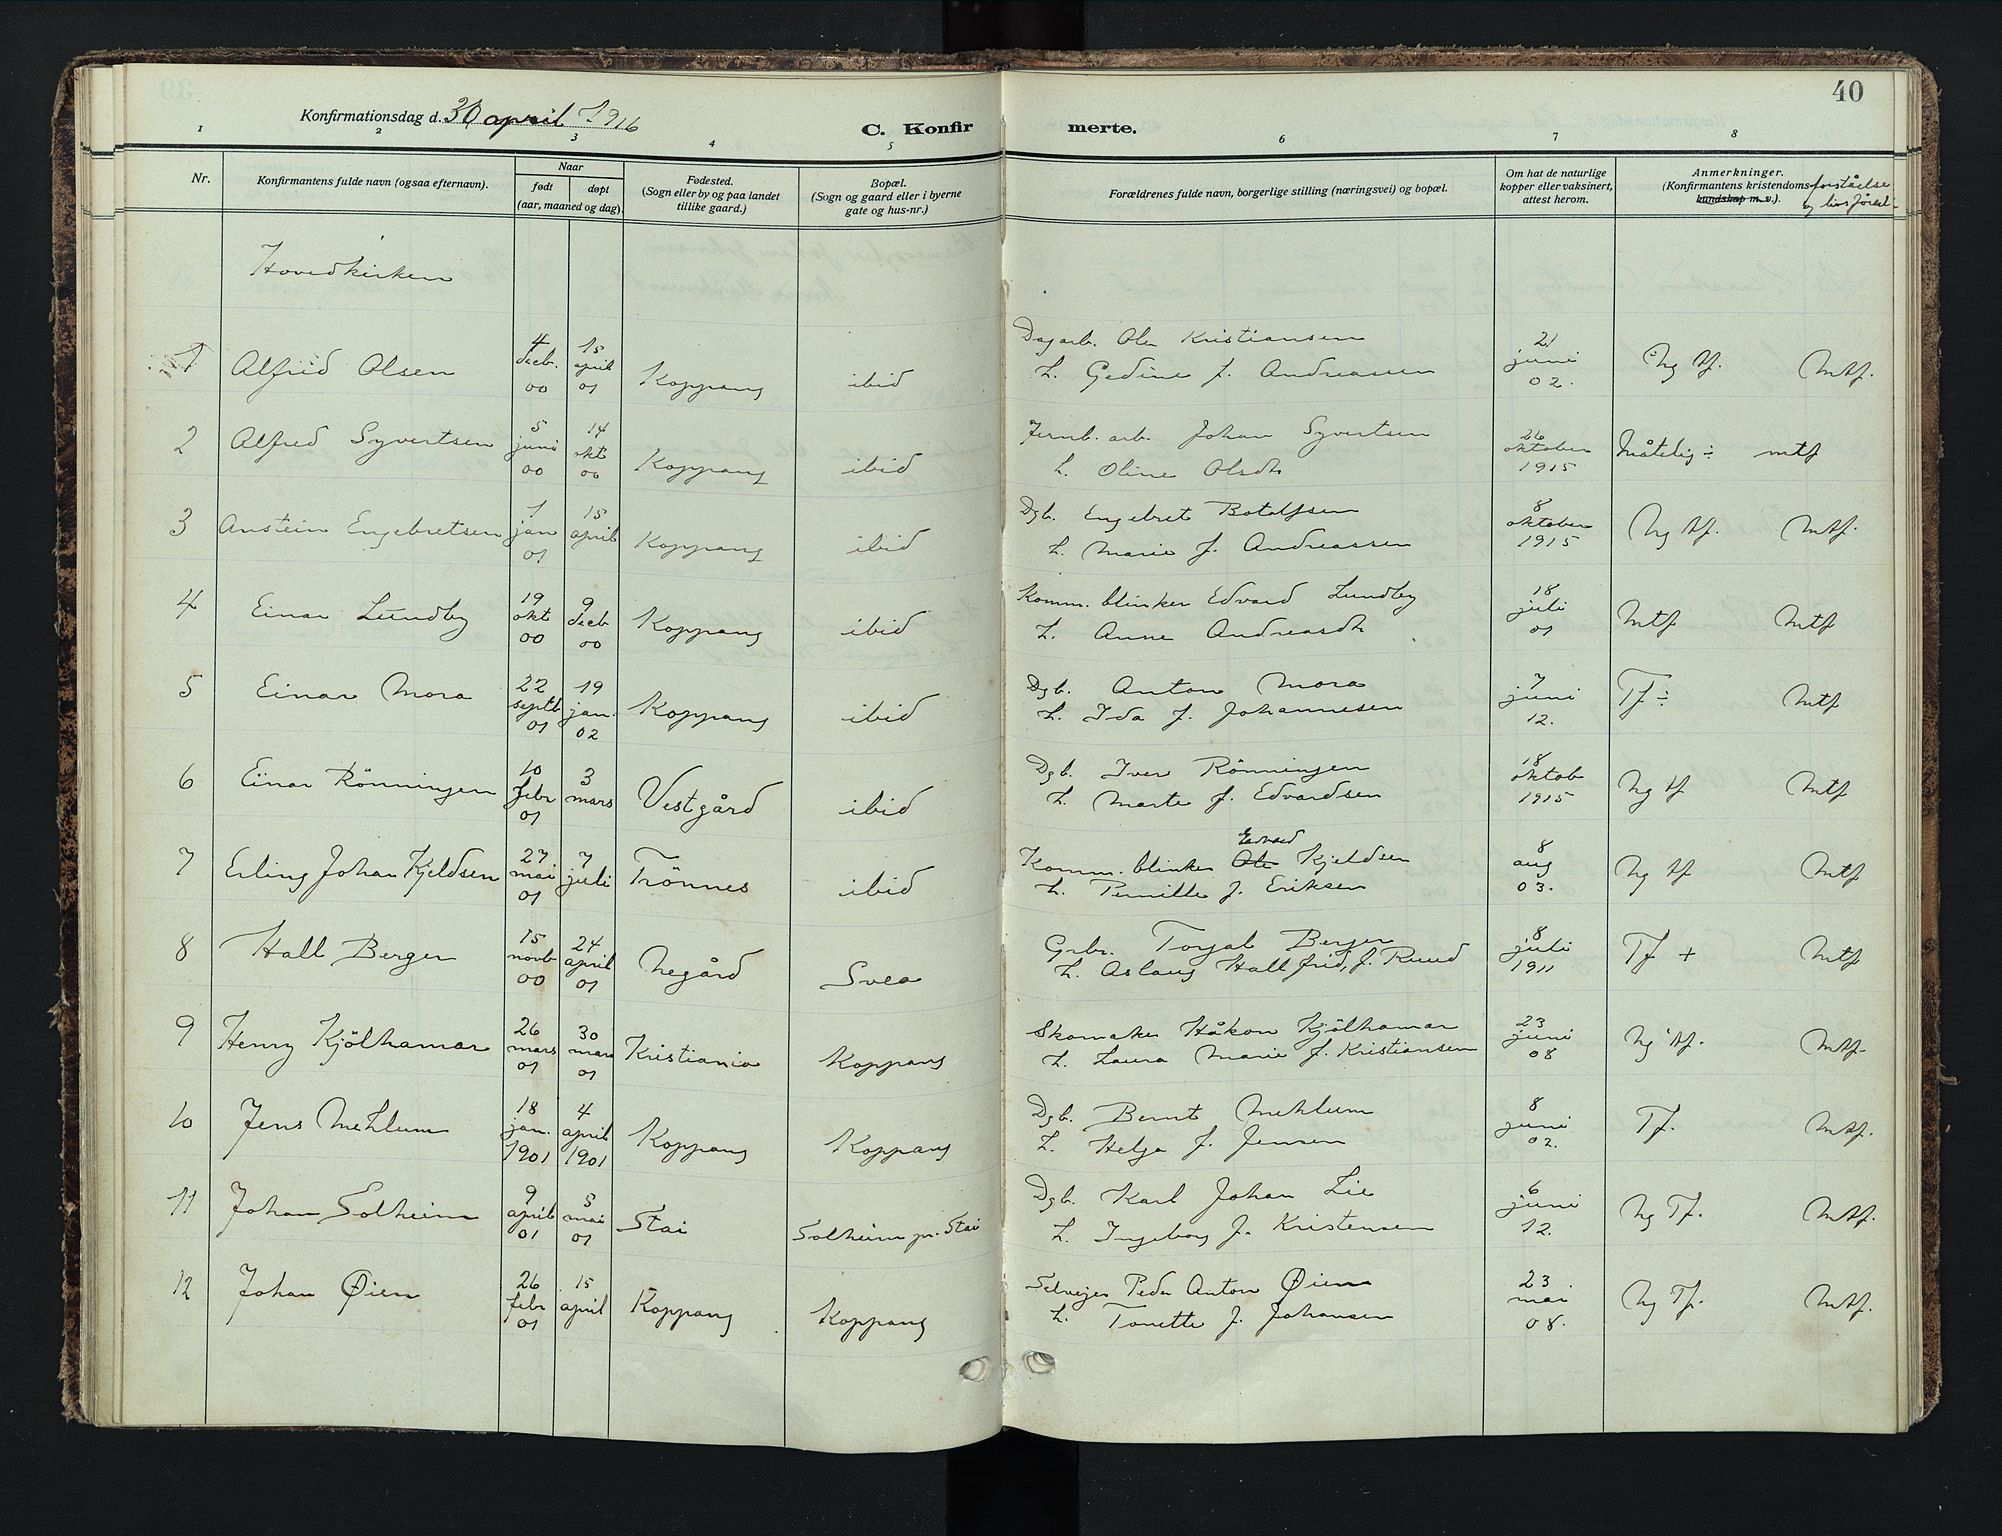 40
Konfirmationsdag d. 30 april 1916
C. Konfirmerte.
1 2 3 4 5 6 7 8
Nr.
Konfirmantens fulde navn (ogsaa efternavn).
Naar
født døpt
(aar, maaned og dag).
Fødested.
(Sogn eller by og paa landet
tillike gaard.)
Bopæl.
(Sogn og gaard eller i byerne
gate og hus-nr.)
Forældrenes fulde navn, borgerlige stilling (næringsvei) og bopæl.
Om hat de naturlige
kopper eller vaksinert,
attest herom.
Anmerkninger.
(Konfirmantens kristendoms- forståelse
kundskap m. v.).
Hovedkirken
1 Alfrid Olsen 4 decb. 00 15 april 01 Koppang ibid Dagarb. Ole Kristiansen 21 juni 02. Ng tf. Mtf.
h. Gedine f. Andreassen
2 Alfred Syvertsen 5 juni 00 14 okt 00 Koppang ibid Jernb. arb. Johan Syvertsen 26 oktober 1915 Måtelig ÷ mtf
h. Oline Olsdt
3 Anstein Engebretsen 1 jan 01 15 april Koppang ibid Dgb. Engebret Botolfsen 8 oktober 1915 Ng tf. Mtf.
h. Marie f. Andreassen
4 Einar Lundby 19 okt 00 9 decb 00 Koppang ibid Komm. blinker Edvard Lundby 18 juli 01 Mtf Mtf
h. Anne Andreasdt
5 Einar Mora 22 septb 01 19 jan. 02 Koppang ibid Dgb. Anton Mora 7 juni 12. Tf ÷ Mtf
h. Ida f. Johannesen
6 Einar Rönningen 10 febr 01 3 mars Vestgård ibid Dgb. Iver Rönningen 18 oktob 1915 Ng tf Mtf
h. Marte f. Edvardsen
7 Erling Johan Kjeldsen 27 mai 01 7 juli Trönnes ibid Komm. blinker Ole Edvard Kjeldsen 8 aug 03. Ng tf Mtf
h. Pernille f. Eriksen
8 Hall Berger 15 novb 00 24 april 01 Negård Svea Grbr. Torjal Berger 8 juli 1911 Tf + Mtf
h. Aslaug Hallfrid, f. Ruud
9 Henry Kjölhamar 26 mars 01 30 mars 01 Kristiania Koppang Skomaker Håkon Kjölhamar 23 juni 08 Ng tf. Mtf.
h. Laura Marie f. Kristiansen
10 Jens Mehlum 18 jan. 1901 4 april 1901 Koppang Koppang Dgb. Bernt Mehlum 8 juni 02. Tf. Mtf.
h. Helga f. Jensen
11 Johan Solheim 9 april 01 5 mai 01 Stai Solheim pr. Stai Dgb. Karl Johan Lie 6 juni 12. Ng Tf. Mtf.
h. Ingeborg f. Kristensen
12 Johan Øien 26 febr 01 15 april Koppang Koppang Selvejer Peder Anton Øien 23 mai 08. Ng Tf. Mtf.
h. Tonette f. Johansen